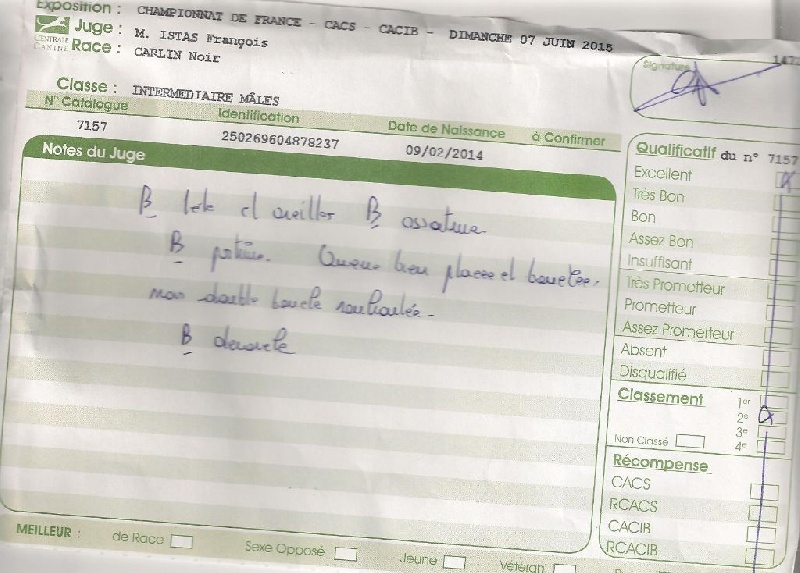 Exposition : CHAMPIONNAT DE FRANCE - CACS - CACIB - DIMANCHE 07 JUIN 2015
Juge : M. ISTAS François
CENTRALE CANINE
Race : CARLIN Noir
Classe : INTERMEDIAIRE MÂLES
N° Catalogue Identification Date de Naissance à Confirmer
7157 250269604878237 09/02/2014
Notes du Juge
B tete et oreilles B ossature
B poitrine. Queue bien placee et bouclée.
mais double boucle souhaitée.
B demarche
Signature
Qualificatif du n° 7157
Excellent
Très Bon
Bon
Assez Bon
Insuffisant
Très Prometteur
Prometteur
Assez Prometteur
Absent
Disqualifié
Classement 1er
2e
3e
Non Classé 4e
Récompense
CACS
RCACS
CACIB
RCACIB
MEILLEUR : de Race Sexe Opposé Jeune Vétéran